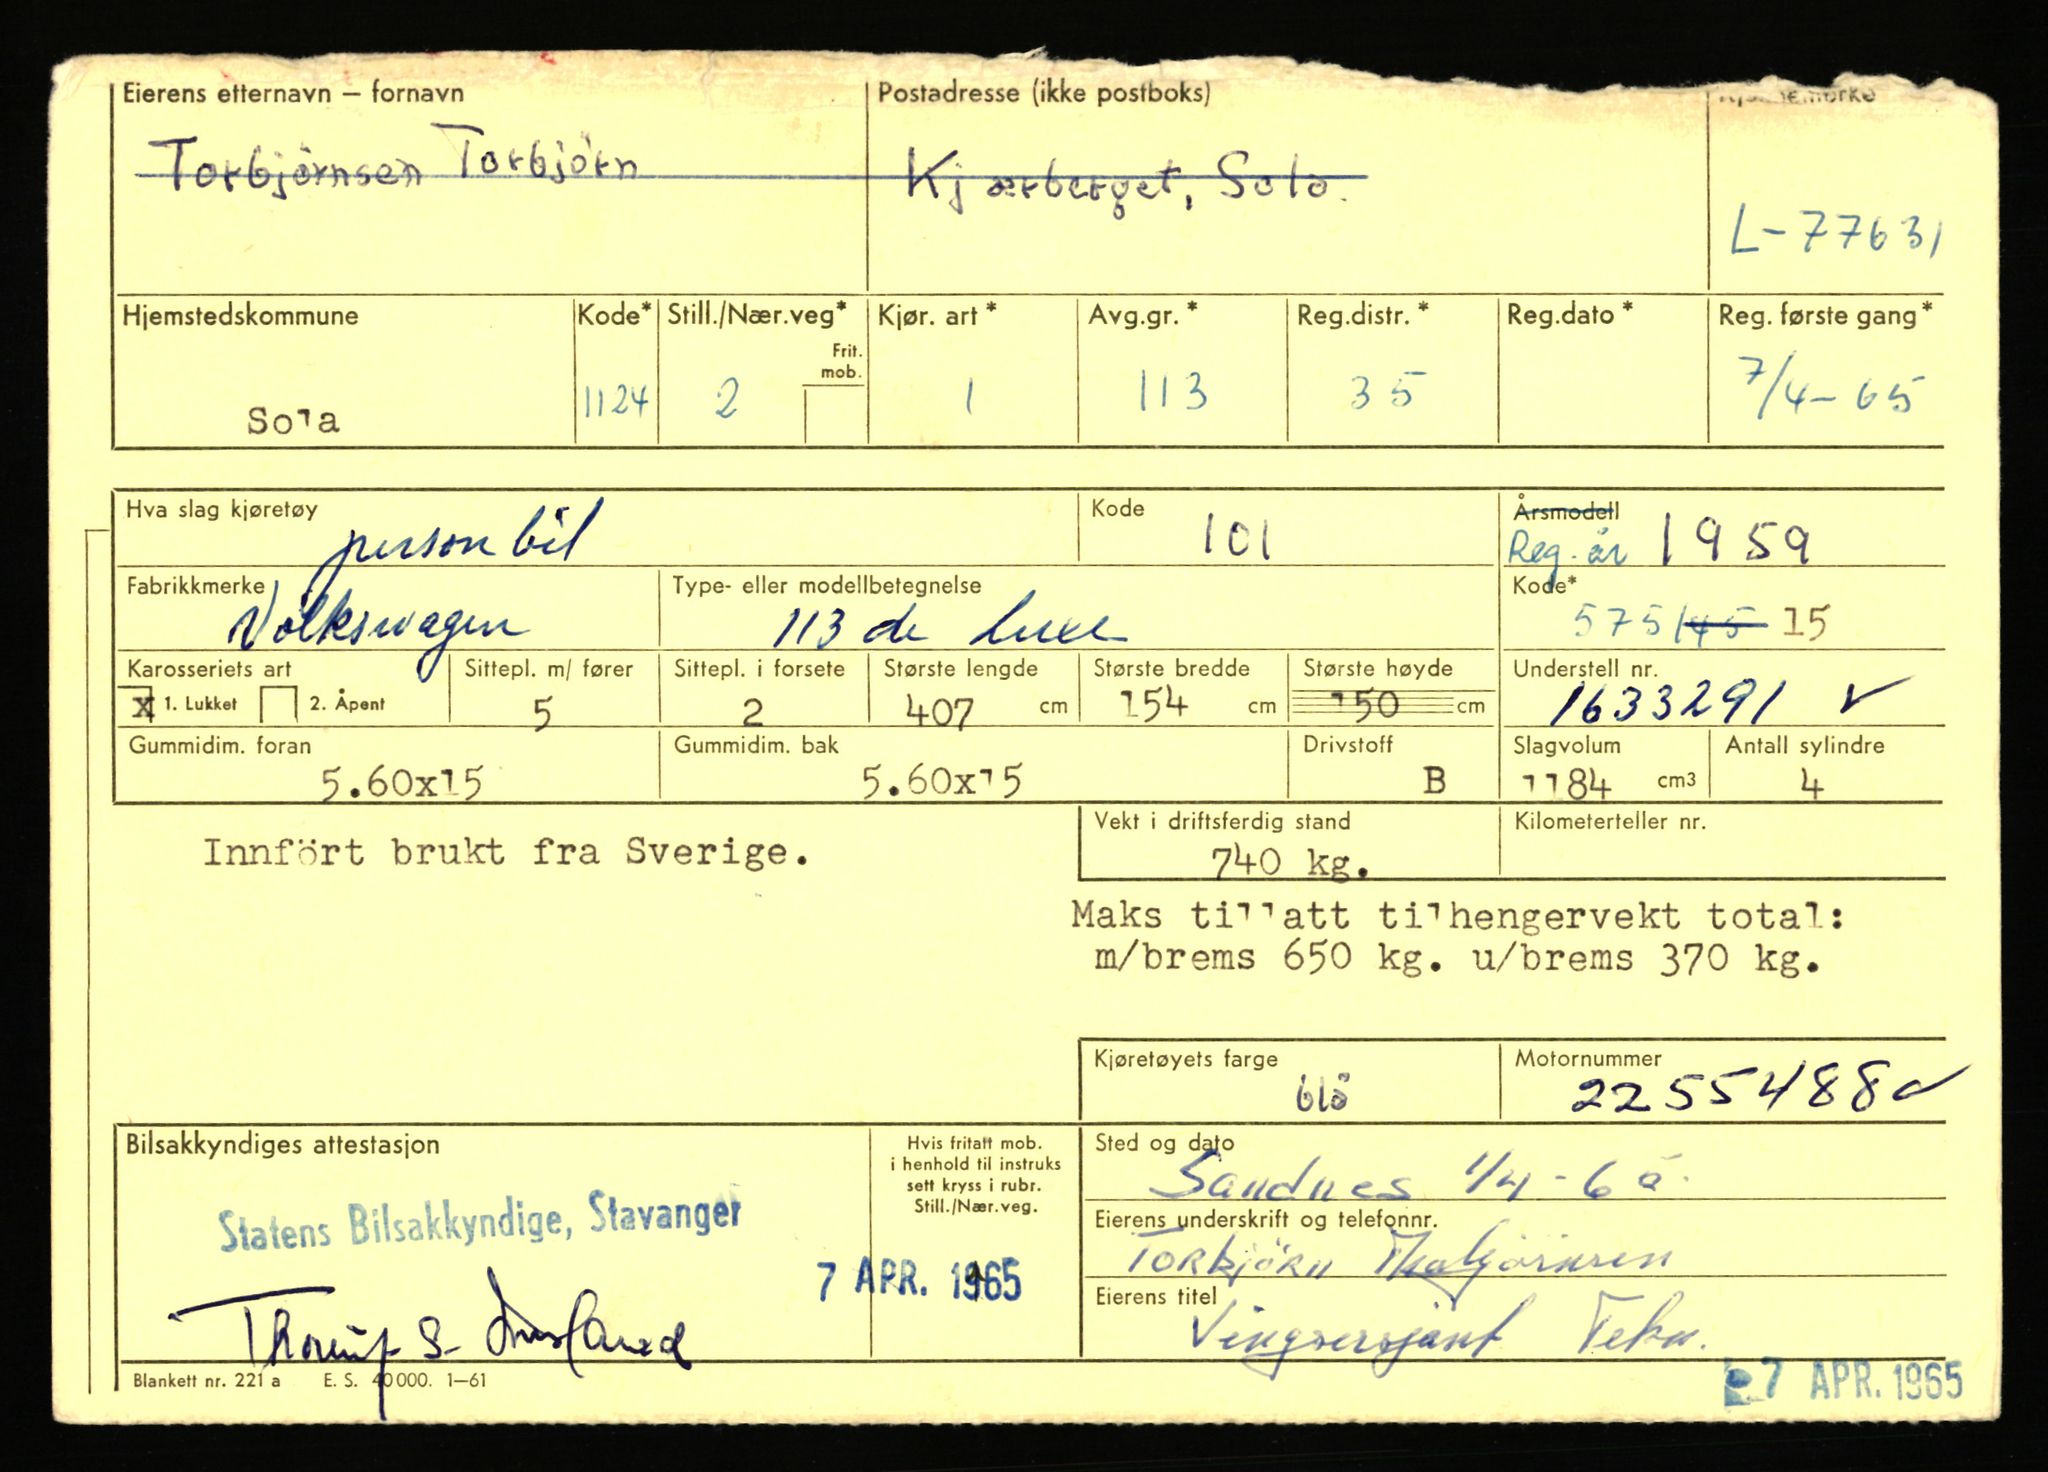 Eierens etternavn – fornavn Postadresse (ikke postboks)
Torbjørnsen Torbjørn Kjærberget, Sola.
L-77631
Hjemstedskommune Kode* Still./Nær.veg* Kjør. art* Avg.gr.* Reg.distr.* Reg.dato* Reg. første gang*
Frit. mob.
Sola 1124 2 1 113 35 7/4-65
Hva slag kjøretøy Kode Årsmodell
personbil 101 Reg. år 1959
Fabrikkmerke Type- eller modellbetegnelse Kode*
Volkswagen 113 de luxe 575145 15
Karosseriets art Sittepl. m/ fører Sittepl. i forsete Største lengde Største bredde Største høyde Understell nr.
x 1. Lukket 2. Åpent 5 2 407 cm 154 cm 150 cm 1633291 ✓
Gummidim. foran Gummidim. bak Drivstoff Slagvolum Antall sylindre
5.60x15 5.60x15 B 1184 cm3 4
Vekt i driftsferdig stand Kilometerteller nr.
Innfört brukt fra Sverige. 740 kg.
Maks tillatt tilhengervekt total:
m/brems 650 kg. u/brems 370 kg.
Kjøretøyets farge Motornummer
blå 2255488 ✓
Bilsakkyndiges attestasjon Hvis fritatt mob. i henhold til instruks sett kryss i rubr. Still./Nær.veg. Sted og dato
Sandnes 1/4-65.
Statens Bilsakkyndige, Stavanger Eierens underskrift og telefonnr.
Torbjörn Torbjörnsen
7 APR. 1965 Eierens titel
Vingsersjant Tekn.
Blankett nr. 221 a E. S. 40 000. 1–61 7 APR. 1965